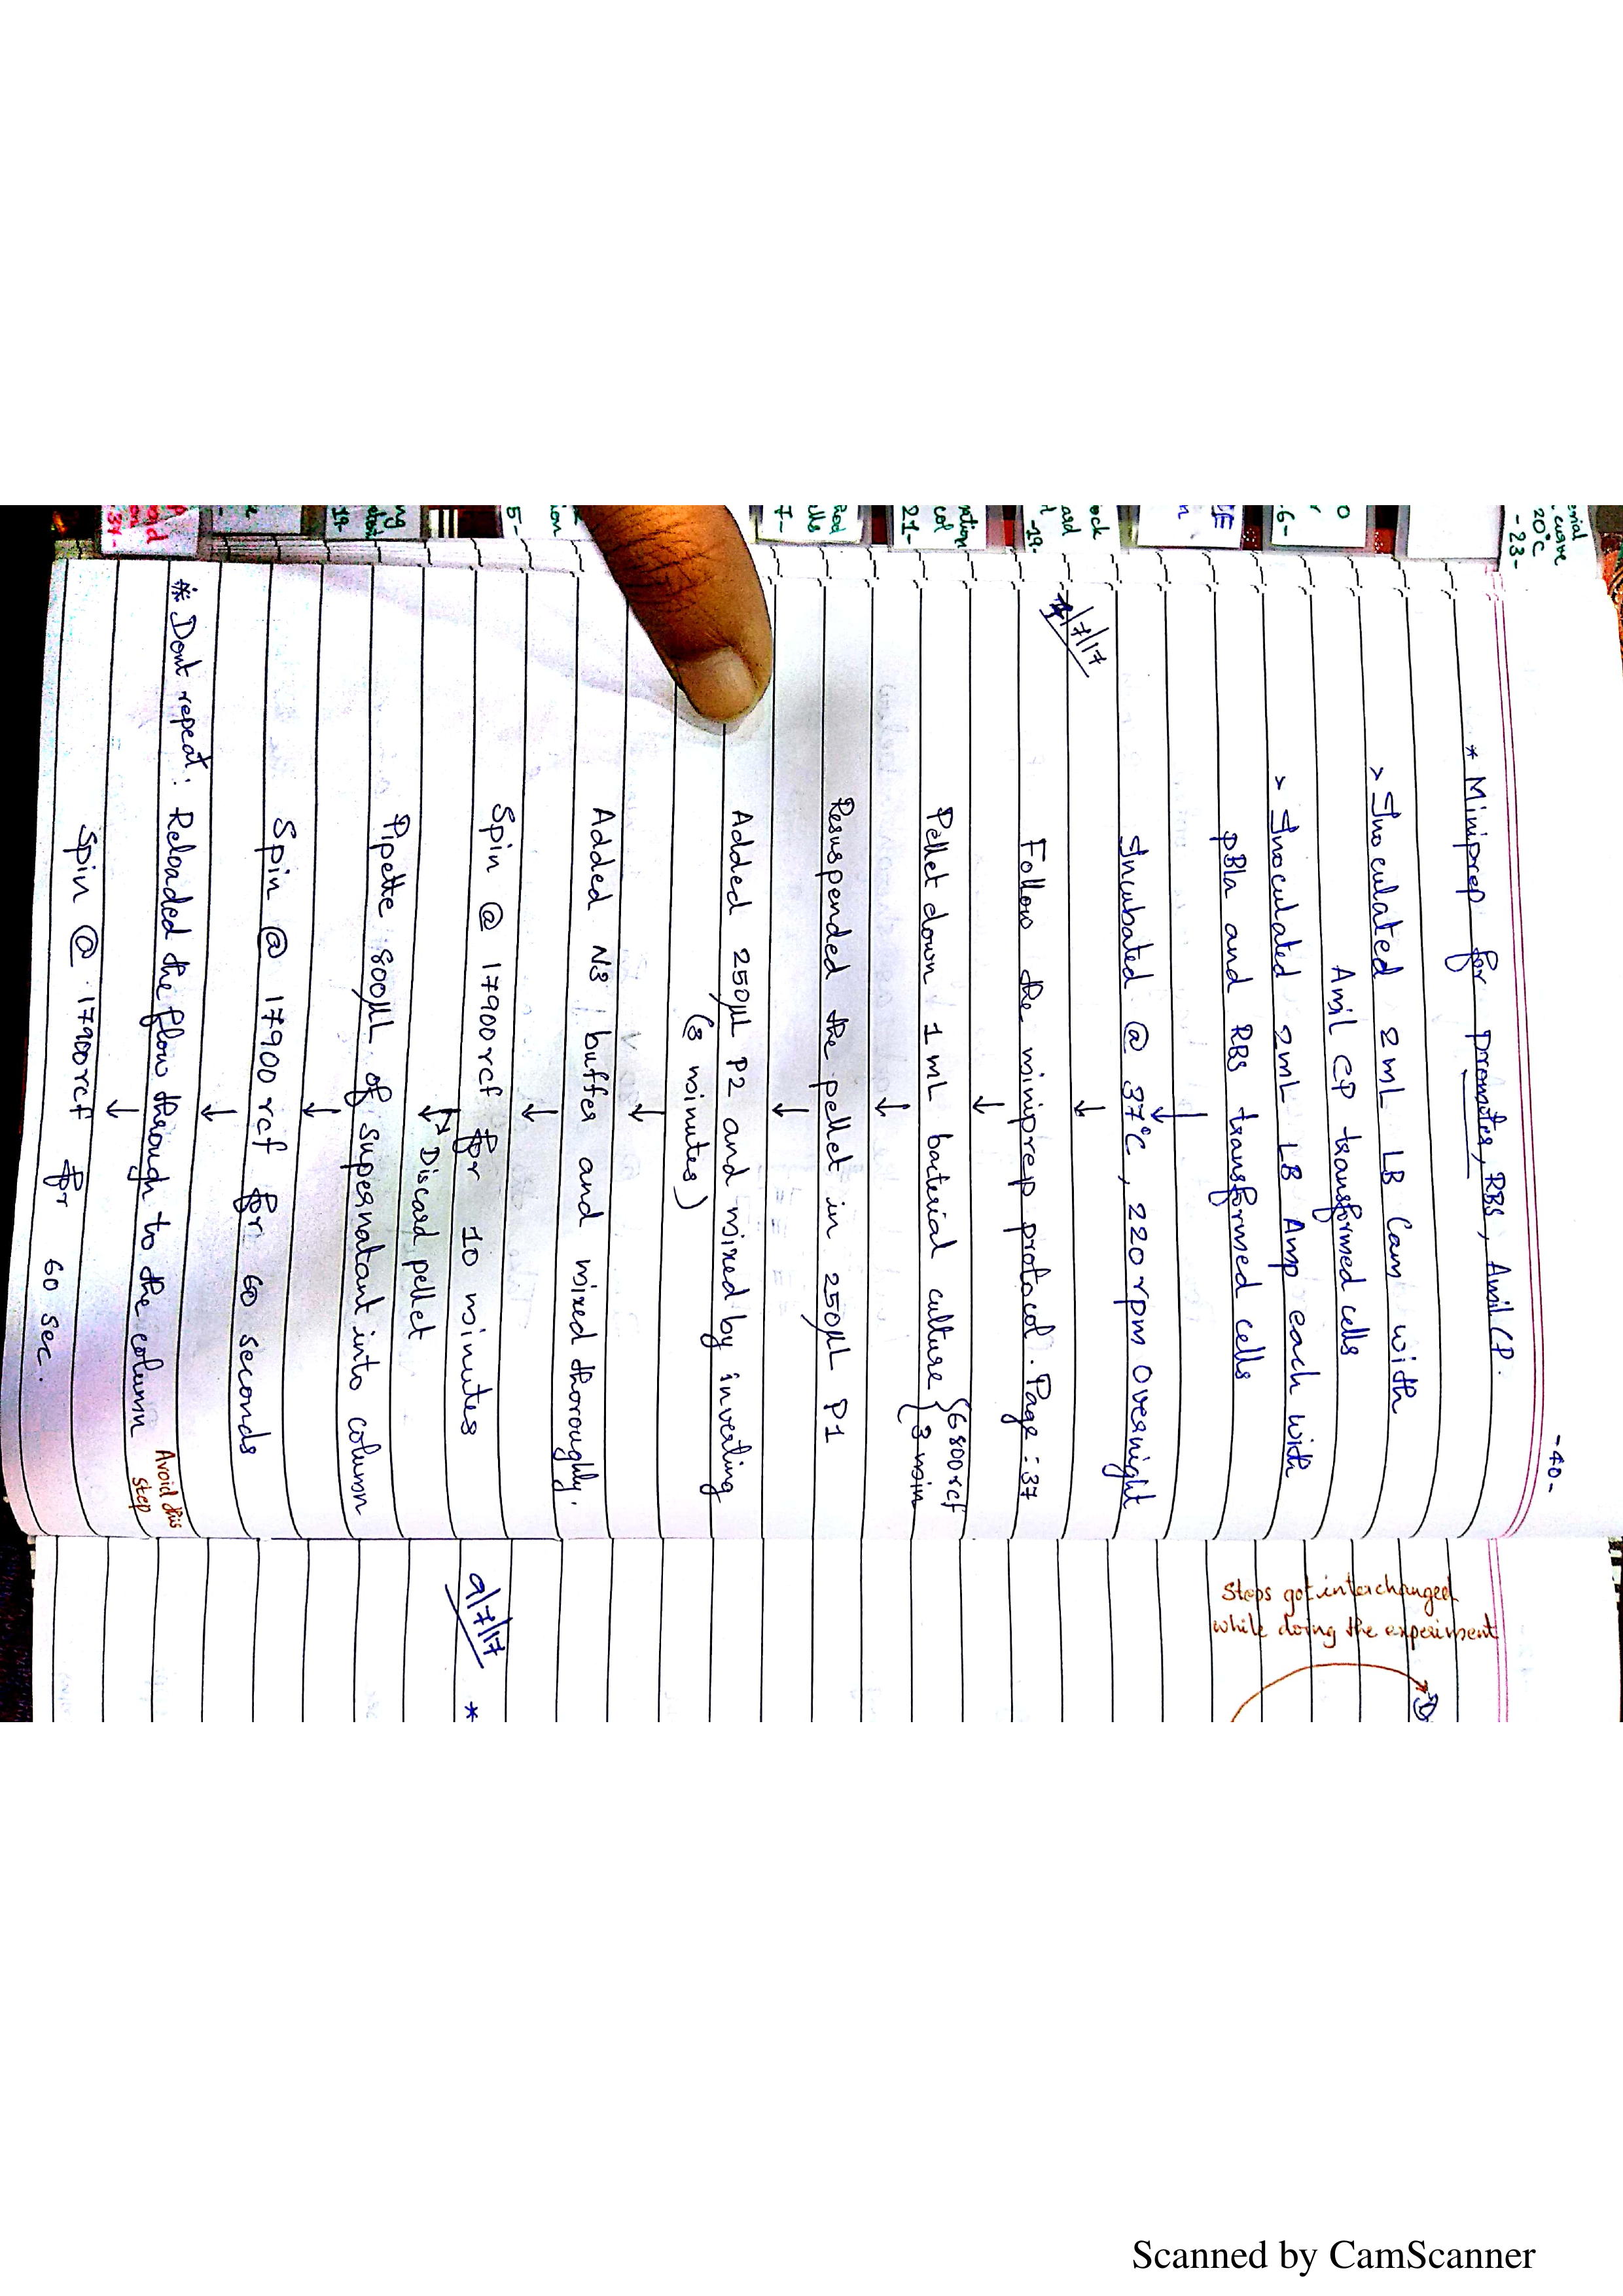 -40-
* Miniprep for promoter, RBS, Amil CP.
> Inoculated 2mL LB Cam with
Amil CP transformed cells
> Inoculated 2mL LB Amp each with
pBla and RBS transformed cells
Incubated @ 37°C, 220rpm Overnight
/7/17
Follow the miniprep protocol. Page: 37
Pellet down 1mL bacterial culture {6800rcf
{3 min
Resuspended the pellet in 250µL P1
Added 250µL P2 and mixed by inverting
(3 minutes)
Added N3 buffer and mixed thoroughly.
Spin @ 17900rcf for 10 minutes
Discard pellet
Pipette 800µL of supernatant into column
Spin @ 17900 rcf for 60 seconds
* Dont repeat: Reloaded the flow through to the column
Avoid this
step
Spin @ 17900rcf for 60 sec.
Steps got interchanged
while doing the experiment
9/7/17 *
20°C
-23-
-6-
-19-
21-
7-
5-
19-
37-
Scanned by CamScanner